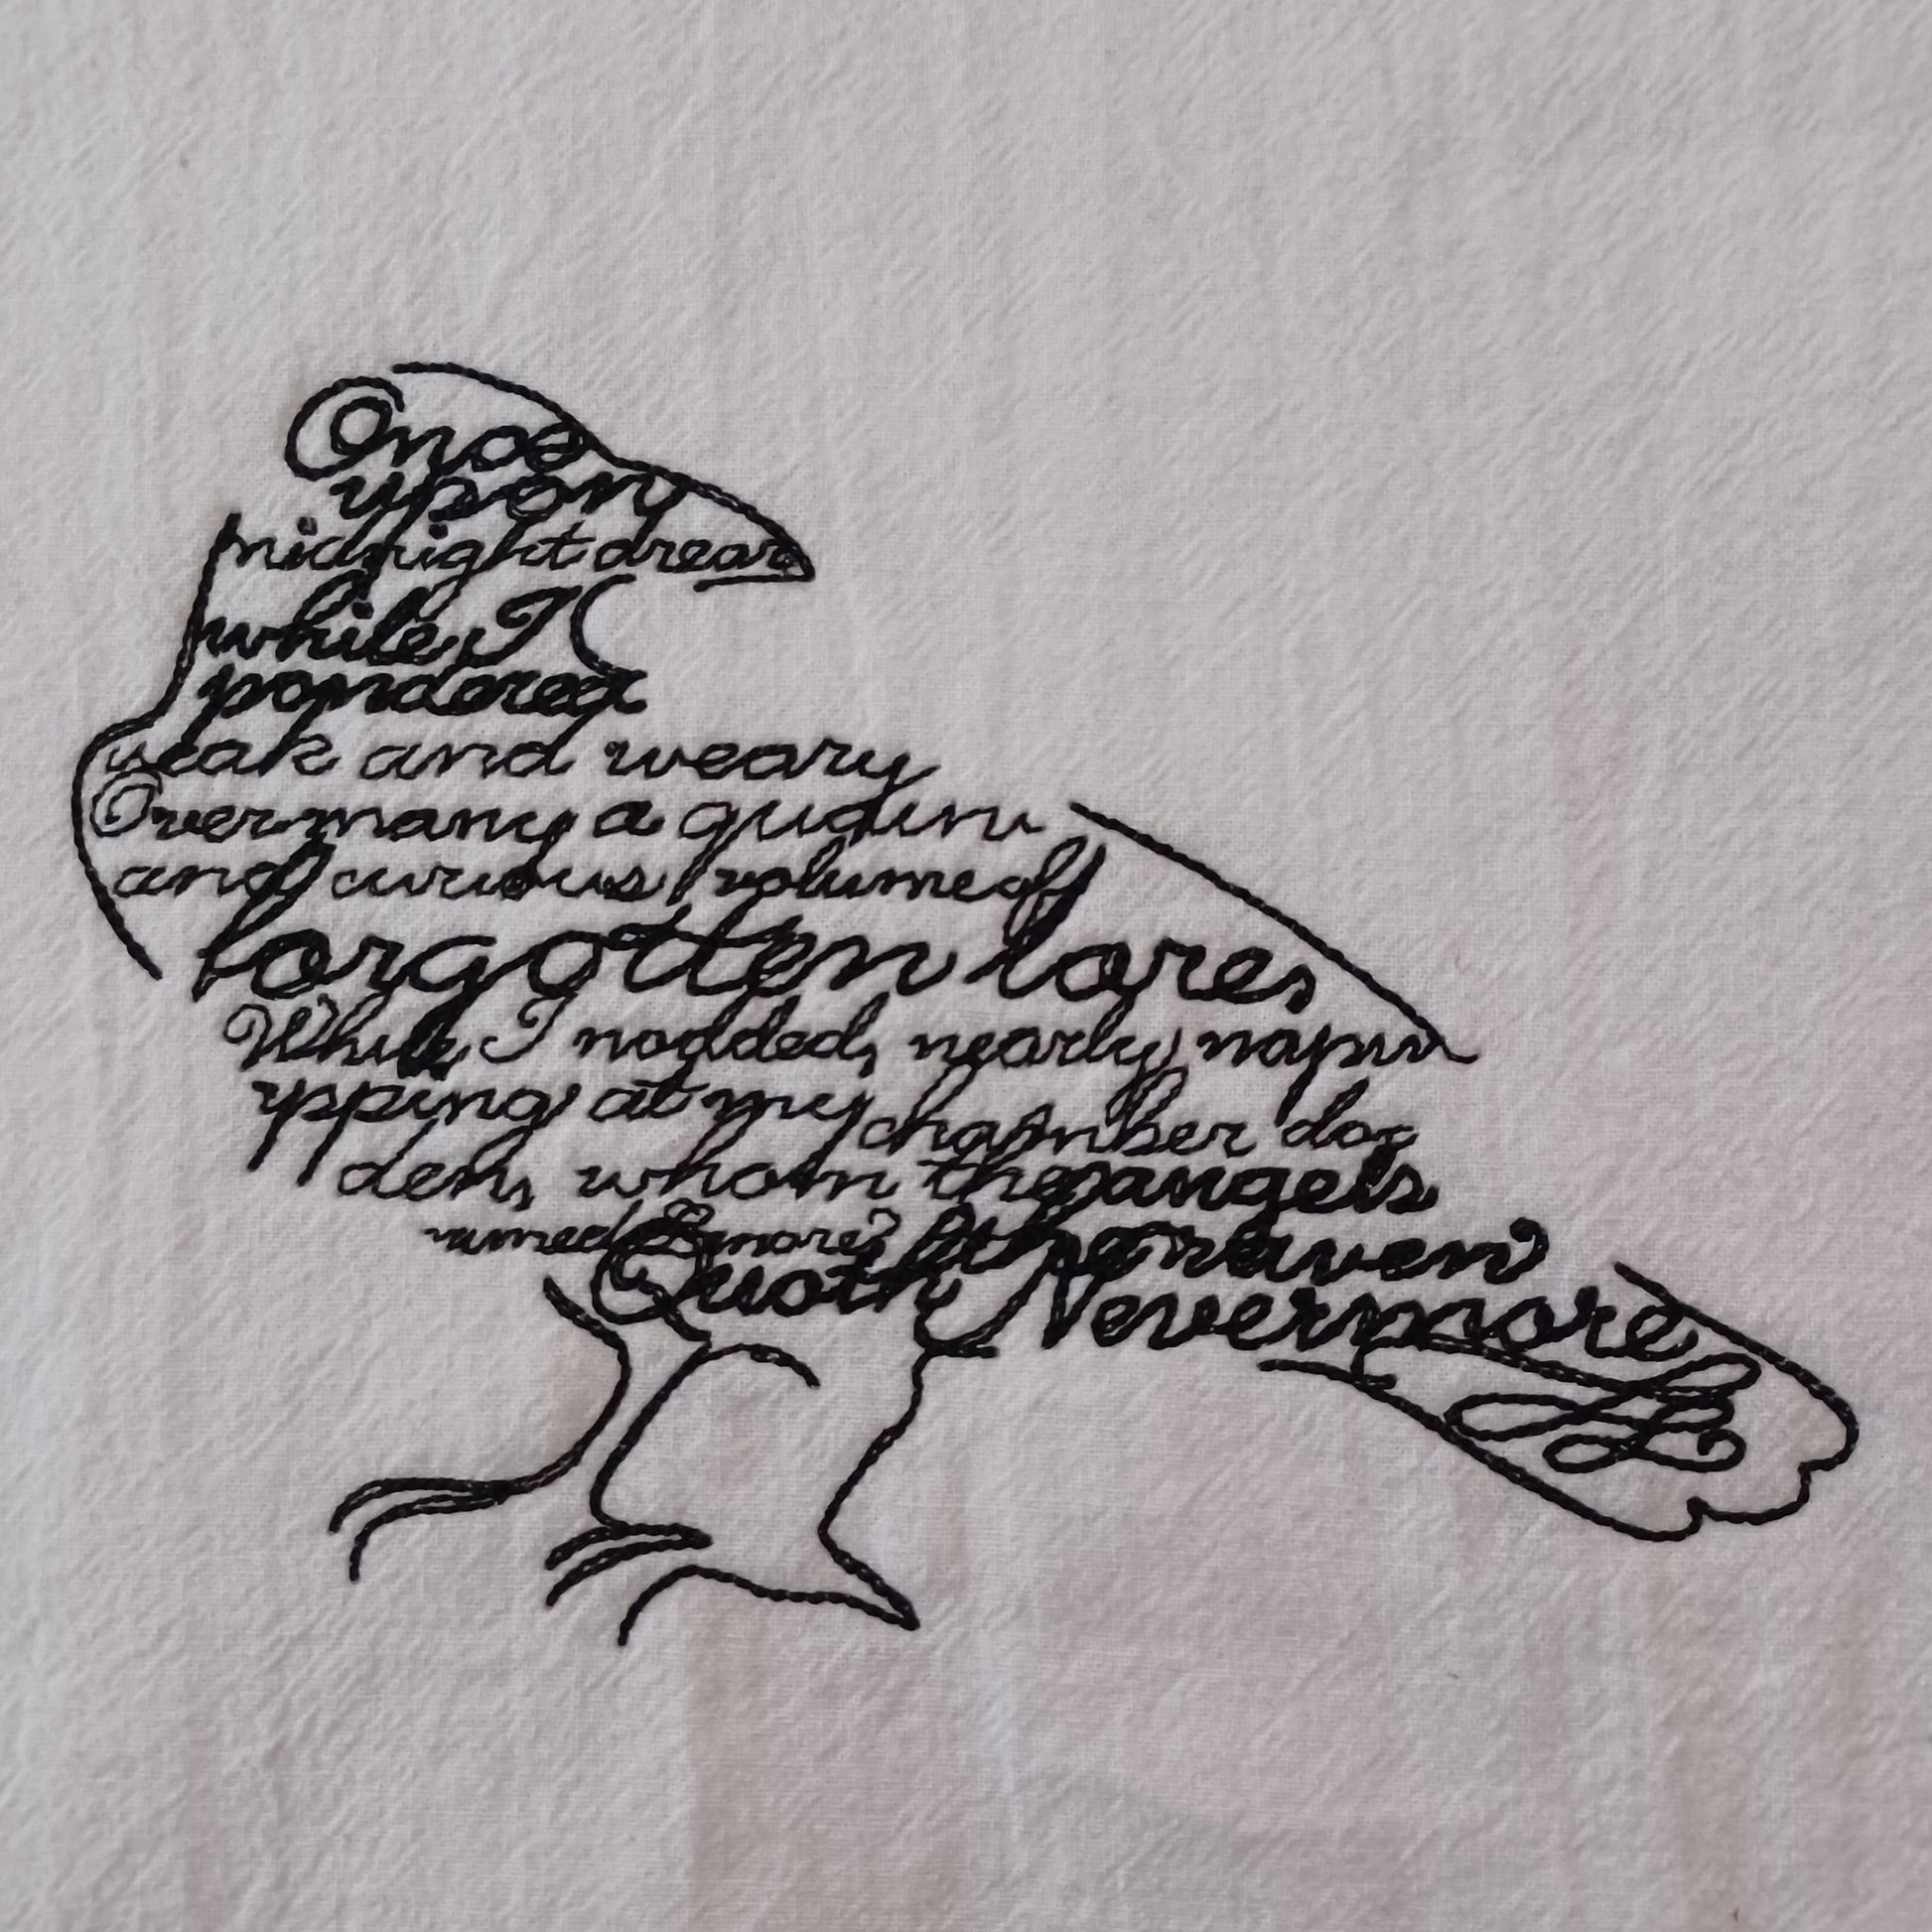 Once
upon
midnight drear
while I
pondered
weak and weary
Over many a
and curious volume of
forgotten lores
While I nodded, nearly
pping at my chamber doo
den, whom the angels
named
Quoth the raven
Nevermore